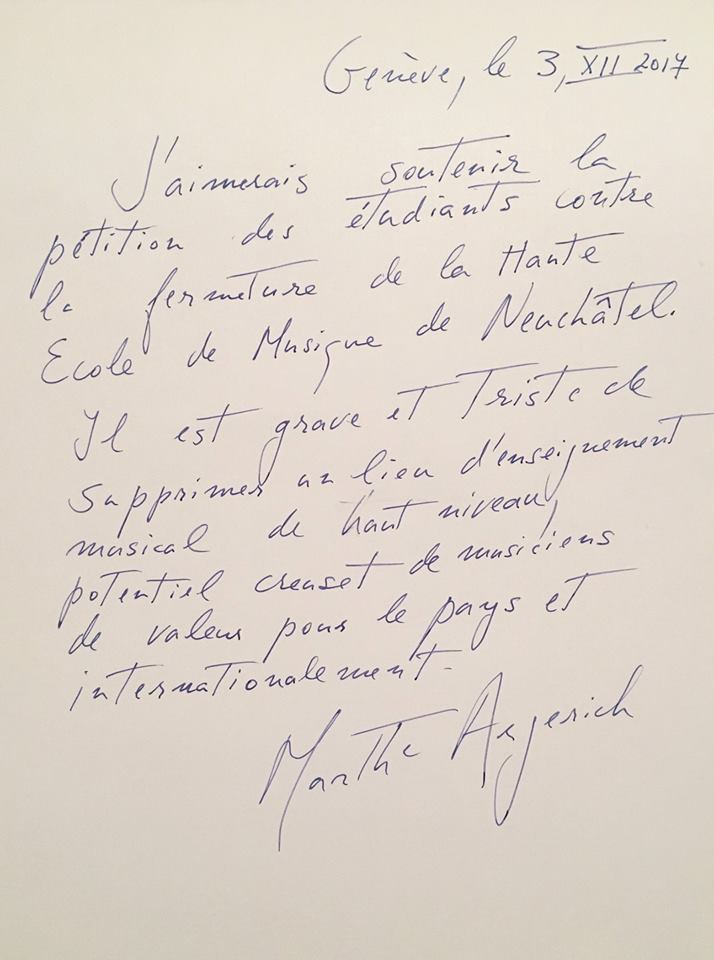 Genève, le 3, XII 2017
J'aimerais soutenir la
pétition des étudiants contre
la fermeture de la Haute
Ecole de Musique de Neuchâtel.
Il est grave et triste de
supprimer un lieu d'enseignement
musical de haut niveau,
potentiel creuset de musiciens
de valeur pour le pays et
internationalement.
Martha Argerich